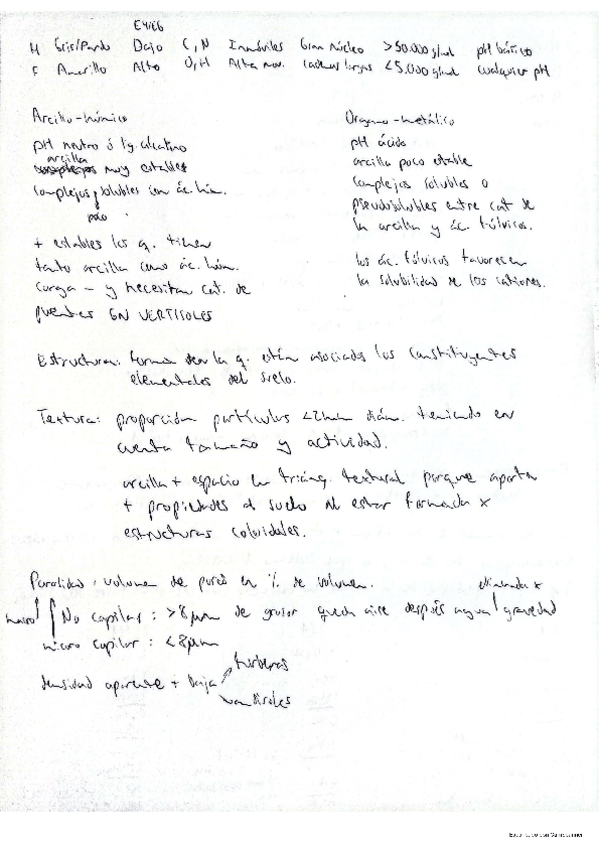 E4/E6
H Gris/Pardo Bajo C, N Inmóviles Gran núcleo >50.000 g/mol pH básico
F Amarillo Alto O, H Alta mov. cadenas largas <5.000 g/mol cualquier pH
Arcillo-húmico
pH neutro ó lg. alcalino
arcilla muy estable
complejos poco solubles con ác. húm.
+ estables los q. tienen
tanto arcilla como ác. húm.
carga - y necesitan cat. de
puentes EN VERTISOLES
Órgano-metálico
pH ácido
arcilla poco estable
complejos solubles o
pseudosolubles entre cat de
la arcilla y ác. fúlvicos.
los ác. fúlvicos favorecen
la solubilidad de los cationes.
Estructura: forma en la q. están asociados los constituyentes
elementales del suelo.
Textura: proporción partículas <2mm diám. teniendo en
cuenta tamaño y actividad.
arcilla + espacio en triáng. textural porque aporta
+ propiedades al suelo al estar formada x
estructuras coloidales.
Porosidad: volumen de poros en % de volumen.
macro No capilar: >8μm de grosor queda aire después agua eliminada x gravedad
micro capilar: <8μm
densidad aparente + baja turberas
andisoles